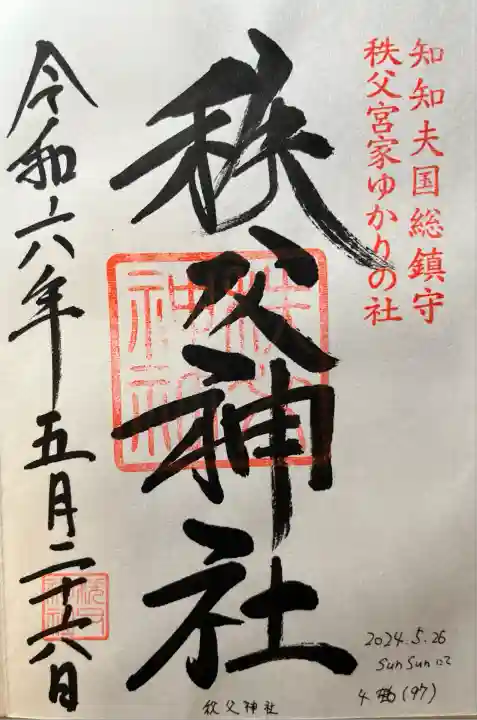 知知夫国総鎮守
秩父宮家ゆかりの社
秩父神社
令和六年五月二十六日
2024.5.26
SunSun にて
(97)
秩父神社